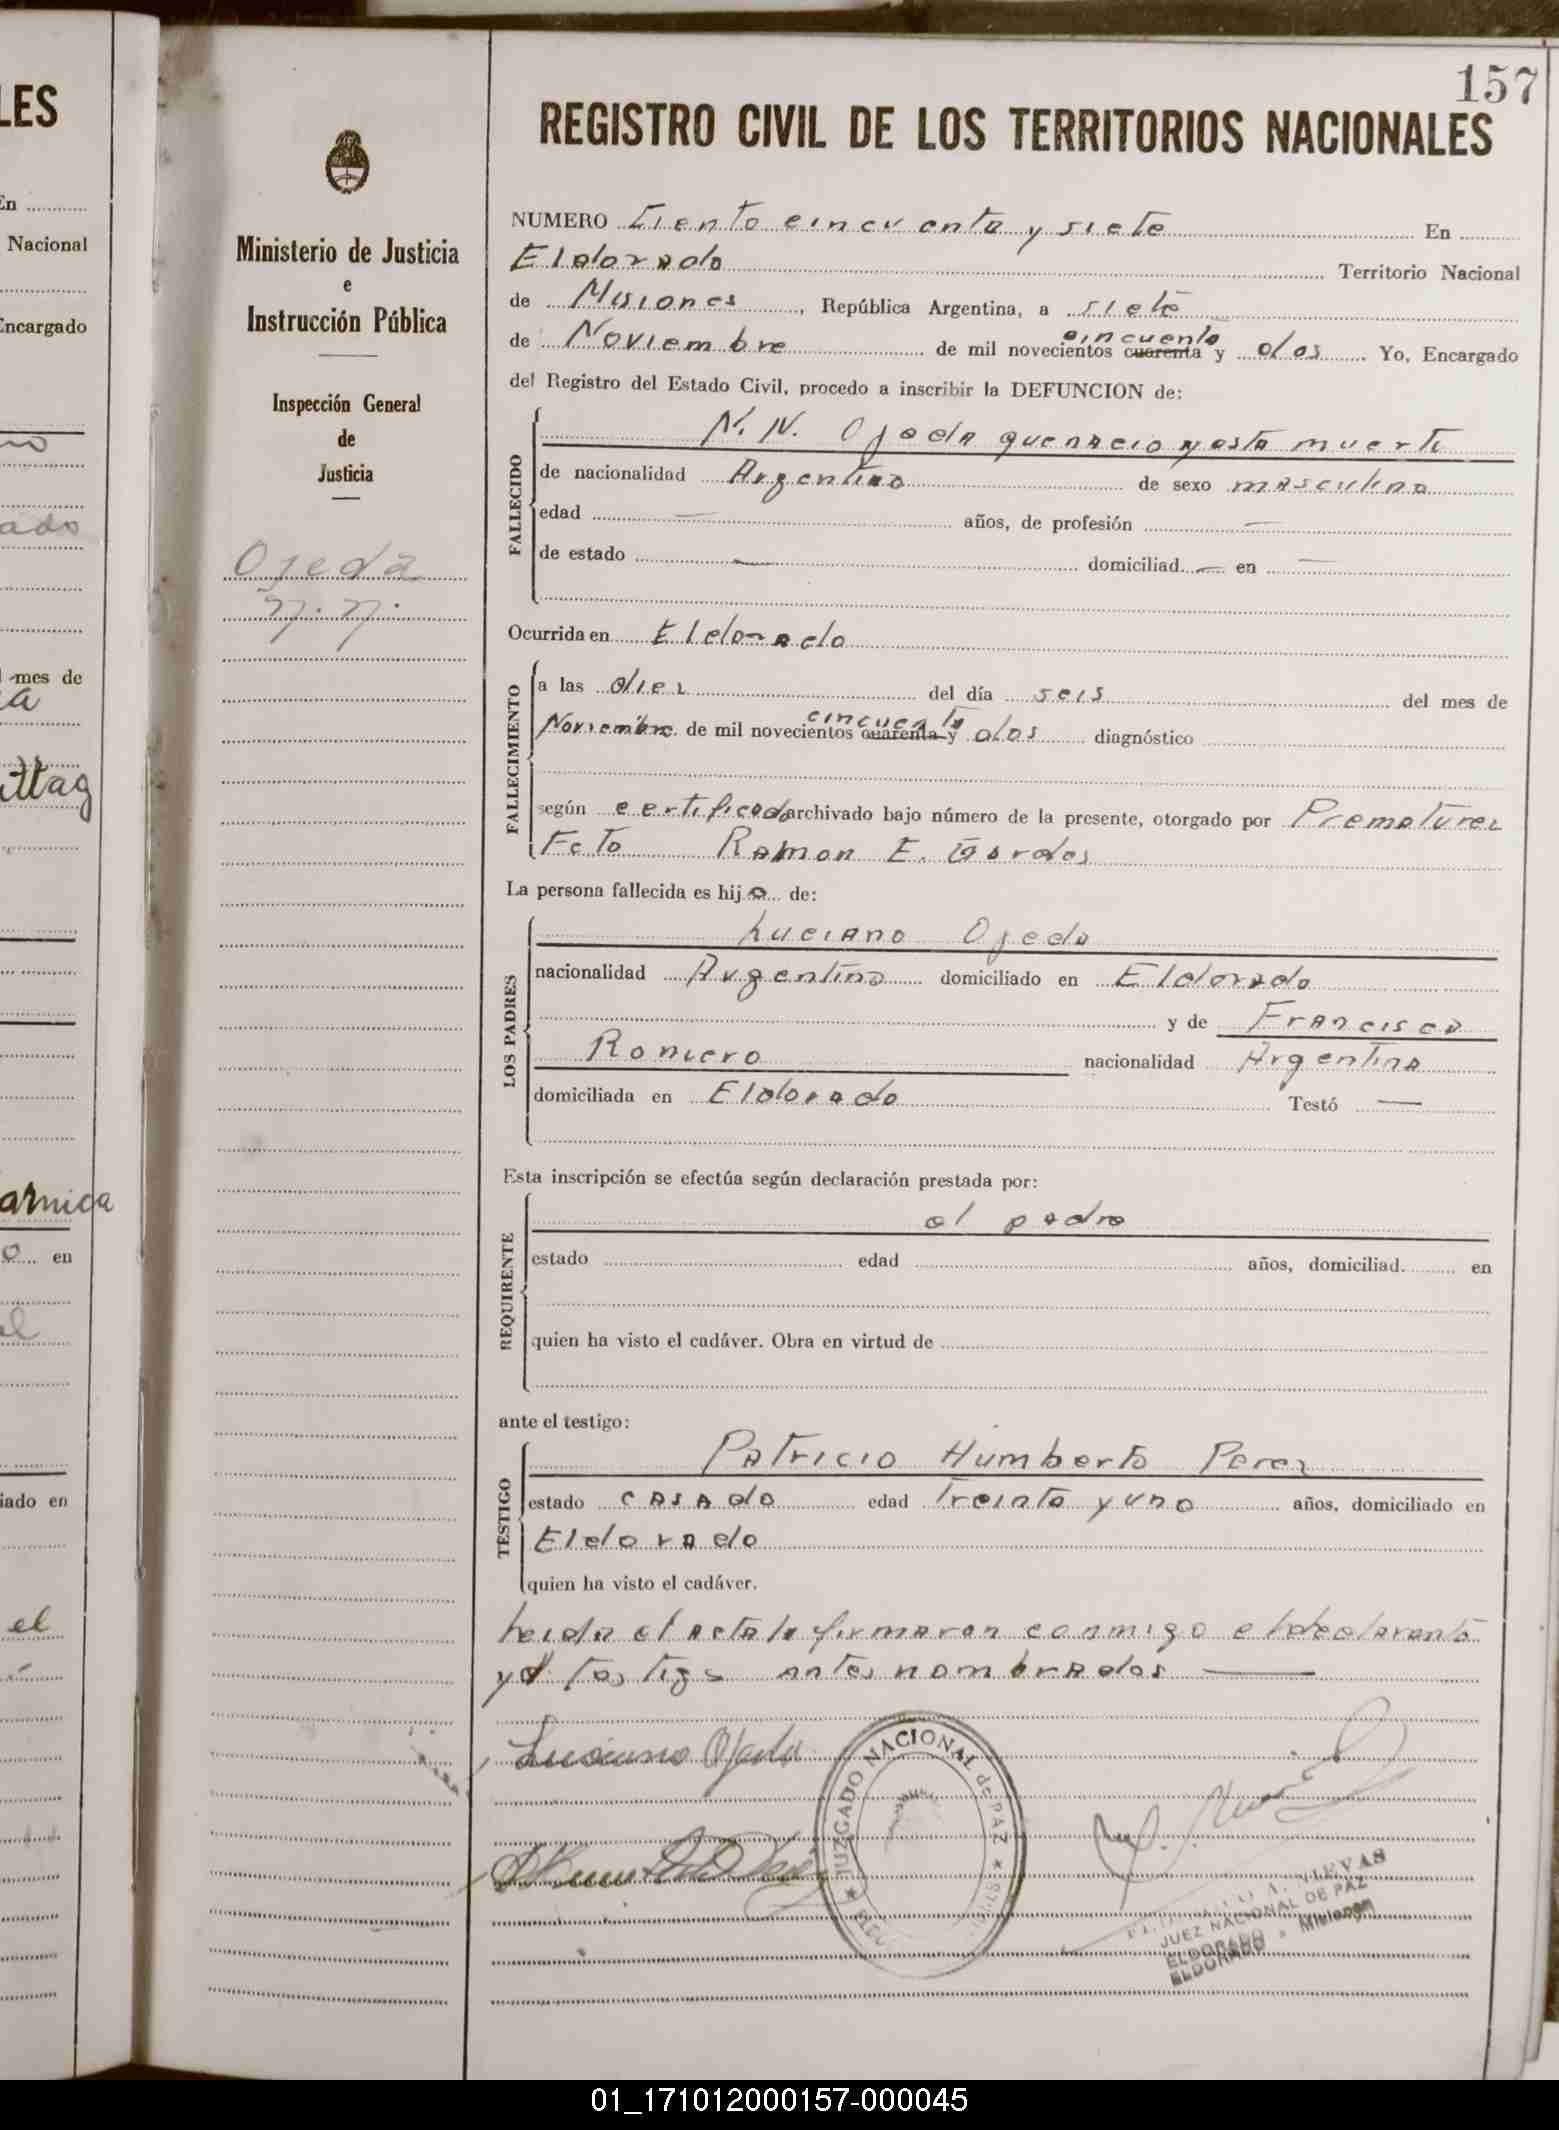 LES
En
Nacional
Encargado
ado
mes de
a
ittag
arnica
o en
el
iado en
el
157
Ministerio de Justicia
e
Instrucción Pública
Inspección General
de
Justicia
Ojeda
N. N.
REGISTRO CIVIL DE LOS TERRITORIOS NACIONALES
NUMERO Ciento cincuenta y siete En
Eldorado Territorio Nacional
de Misiones, República Argentina, a siete
cincuenta
de Noviembre de mil novecientos cuarenta y dos Yo, Encargado
del Registro del Estado Civil, procedo a inscribir la DEFUNCION de:
FALLECIDO
N. N. Ojeda que nacio y esta muerto
de nacionalidad Argentino de sexo masculino
edad — años, de profesión —
de estado — domiciliad — en —
Ocurrida en Eldorado
FALLECIMIENTO
a las diez del día seis del mes de
cincuenta
Noviembre de mil novecientos cuarenta y dos diagnóstico
según certificado archivado bajo número de la presente, otorgado por Prematurez
Feto Ramon E.
La persona fallecida es hijo de:
LOS PADRES
Luciano Ojeda
nacionalidad Argentino domiciliado en Eldorado
y de Francisca
Romero nacionalidad Argentina
domiciliada en Eldorado Testó —
Esta inscripción se efectúa según declaración prestada por:
REQUIRENTE
el padre
estado edad años, domiciliad en
quien ha visto el cadáver. Obra en virtud de
ante el testigo:
TESTIGO
Patricio Humberto Perez
estado casado edad treinta y uno años, domiciliado en
Eldorado
quien ha visto el cadáver.
Leida el acta la firmaron conmigo el declarante
y el testigo antes nombrados —
Luciano Ojeda
JUZGADO NACIONAL de PAZ
A. VIEVAS
JUEZ NACIONAL DE PAZ
ELDORADO - Misiones
ELDORADO
01_171012000157-000045